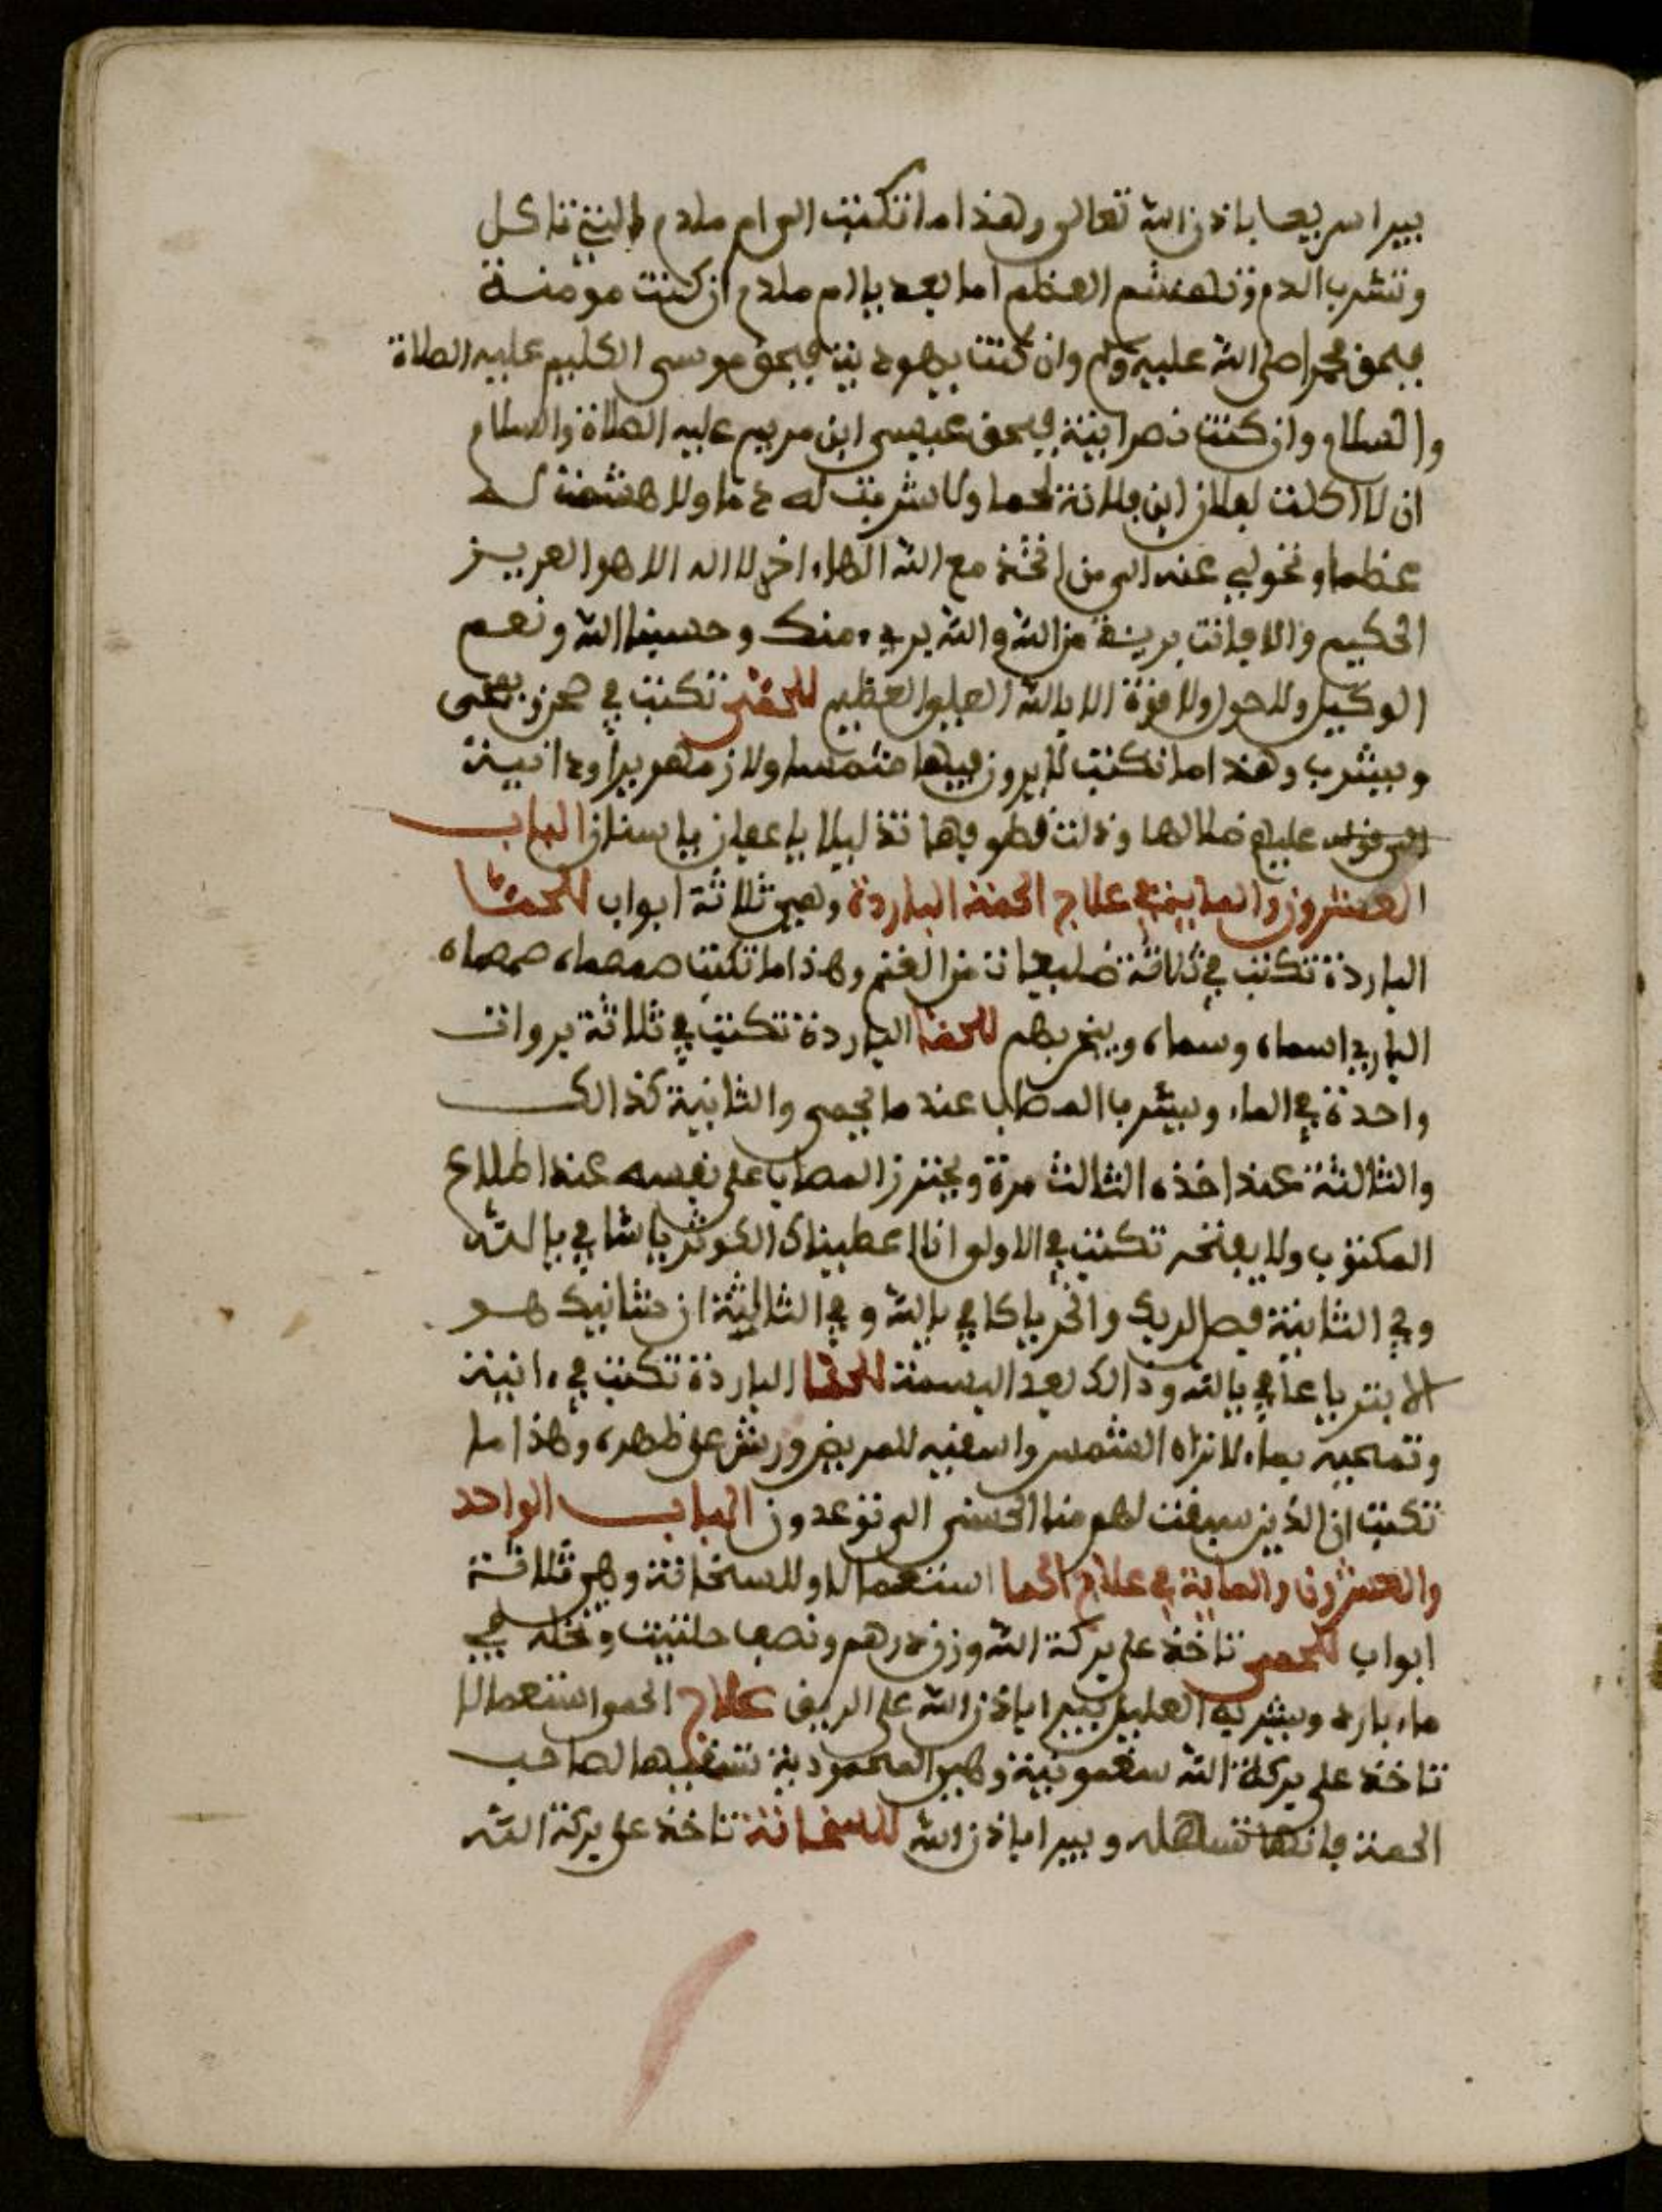 يبرا سريعا باذن الله تعالى وهذا ما تكتب الى ام ملدم التي تاكل
وتشرب الدم وتهشم العظم اما بعد يا ام ملدم ان كنت مومنة
فبحق محمد صلى الله عليه وسلم وان كنت يهودية فبحق موسى الكليم عليه الصلاة
والسلام وان كنت نصرانية فبحق عيسى ابن مريم عليه الصلاة والسلام
ان لا اكلت لفلان ابن فلانة لحما ولا شربت له دما ولا هشمت له
عظما وتحولي عنه الى من اتخذ مع الله الها اخر لا اله الا هو العزيز
الحكيم والا فانت بريئة من الله والله بريء منك وحسبنا الله ونعم
الوكيل ولا حول ولا قوة الا بالله العلي العظيم للحمى تكتب في صحن يمحى
ويشرب وهذا ما تكتب لا يرون فيها شمسا ولا زمهريرا ودانية
عليهم ضلالها وذللت قطوفها تذليلا يا عفان يا سنان الباب
العشرون والماية في علاج الحمة الباردة وهي ثلاثة ابواب للحما
الباردة تكتب في ثلاثة ضليعات من الغنم وهذا ما تكتب صمصماه صمصماه
الباري اسماه وسماه ويبخر بهم للحمة الباردة تكتب في ثلاثة بروات
واحدة في الماء ويشرب المصاب عند ما يحمى والثانية كذالك
والثالثة عند اخذه الثالث مرة ويحترز المصاب على نفسه عند اطلاع
المكتوب ولا يفتحه تكتب في الاولى انا اعطيناك الكوثر يا شافي يا الله
وفي الثانية فصل لربك وانحر يا كافي يا الله وفي الثالثة ان شانيك هو
الابتر يا عافي يا الله وذالك بعد البسمة للحما الباردة تكتب في ءانية
وتمحيه بماء لا تراه الشمس واسقيه للمريض ورش على ظهره وهذا ما
تكتب ان الذين سبقت لهم منا الحسنى الى توعدون الباب الواحد
والعشرون والماية في علاج الحما استعمالا وللسخانة وهي ثلاثة
ابواب للحمى تاخذ على بركة الله وزن درهم ونصف حلتيت وتحله في
ماء بارد ويشربه العليل يبرا باذن الله على الريق علاج الحمى استعمالا
تاخذ على بركة الله سقمونية وهي المحمودية تسقيها لصاحب
الحمة فانها تساهله ويبرا باذن الله للسخانة تاخذ على بركة الله